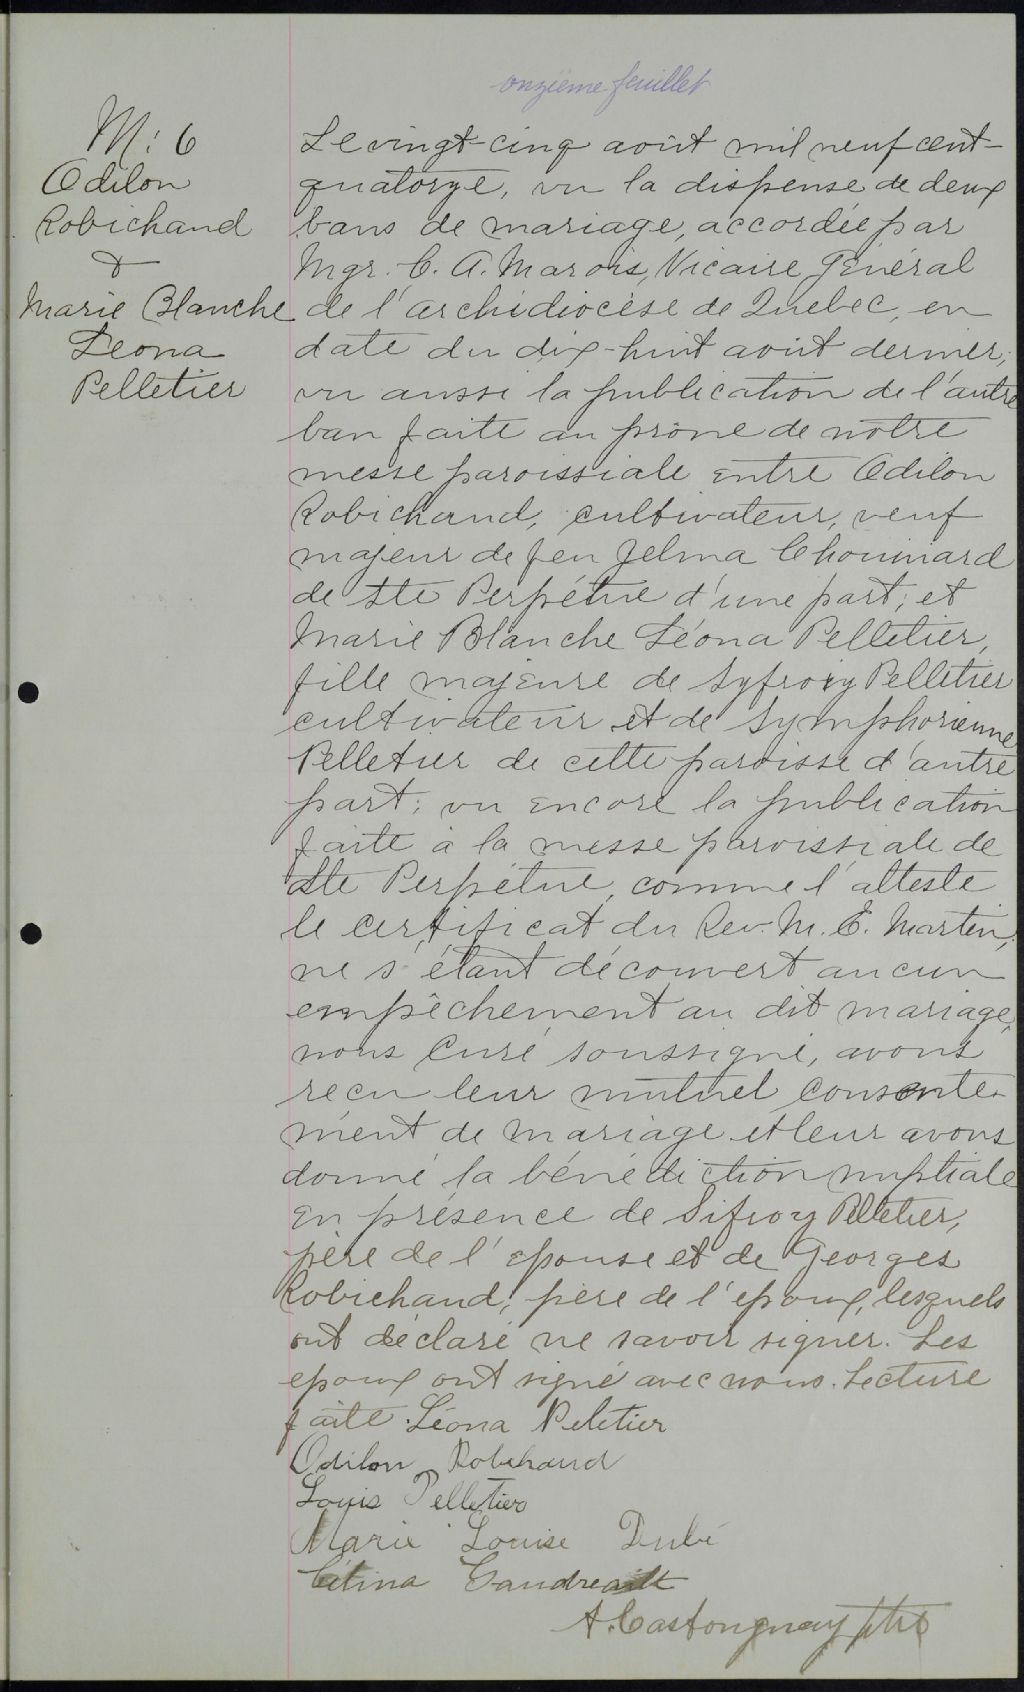 onzième feuillet
M: 6
Odilon
Robichaud
&
Marie Blanche
Leona
Pelletier
Le vingt-cinq août mil neuf cent-
quatorze, vu la dispense de deux
bans de mariage, accordée par
Mgr. C. A. Marois, Vicaire Général
de l'archidiocèse de Québec, en
date du dix-huit août dernier;
vu aussi la publication de l'autre
ban faite au prône de notre
messe paroissiale entre Odilon
Robichaud, cultivateur, veuf
majeur de feu Zelma Chouinard
de Ste Perpétue d'une part; et
Marie Blanche Léona Pelletier,
fille majeure de Syfroiy Pelletier
cultivateur et de Symphorienne
Pelletier de cette paroisse d'autre
part; vu encore la publication
faite à la messe paroissiale de
Ste Perpétue, comme l'atteste
le certificat du Rev. M. E. Martin;
ne s'étant découvert aucun
empêchement au dit mariage,
nous Curé soussigné, avons
recu leur mutuel consente-
ment de mariage et leur avons
donné la bénédiction nuptiale
en présence de Sifroy Pelletier,
père de l'epouse et de Georges
Robichaud, père de l'epoux, lesquels
ont déclaré ne savoir signer. Les
epoux ont signé avec nous. Lecture
faite. Léona Peletier
Odilon Robichaud
Louis Pelletier
Marie Louise Dubé
Célina Gaudreault
A. Castonguay ptre